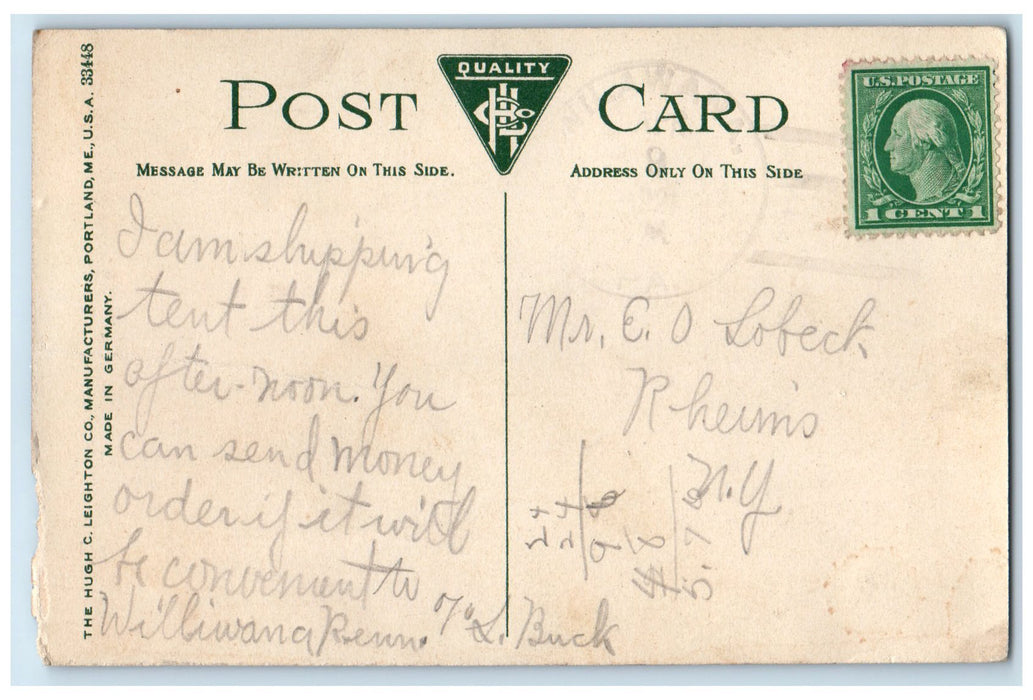 THE HUGH C. LEIGHTON CO., MANUFACTURERS, PORTLAND, ME., U.S.A. 33448
MADE IN GERMANY.
POST CARD
QUALITY
MESSAGE MAY BE WRITTEN ON THIS SIDE.
ADDRESS ONLY ON THIS SIDE
U.S. POSTAGE
1 CENT 1
I am shipping
tent this
after-noon. You
can send money
order if it will
be convenient to
Williwana Penn. L. Buck
Mr. E. O Lobeck
Rheims
N.Y